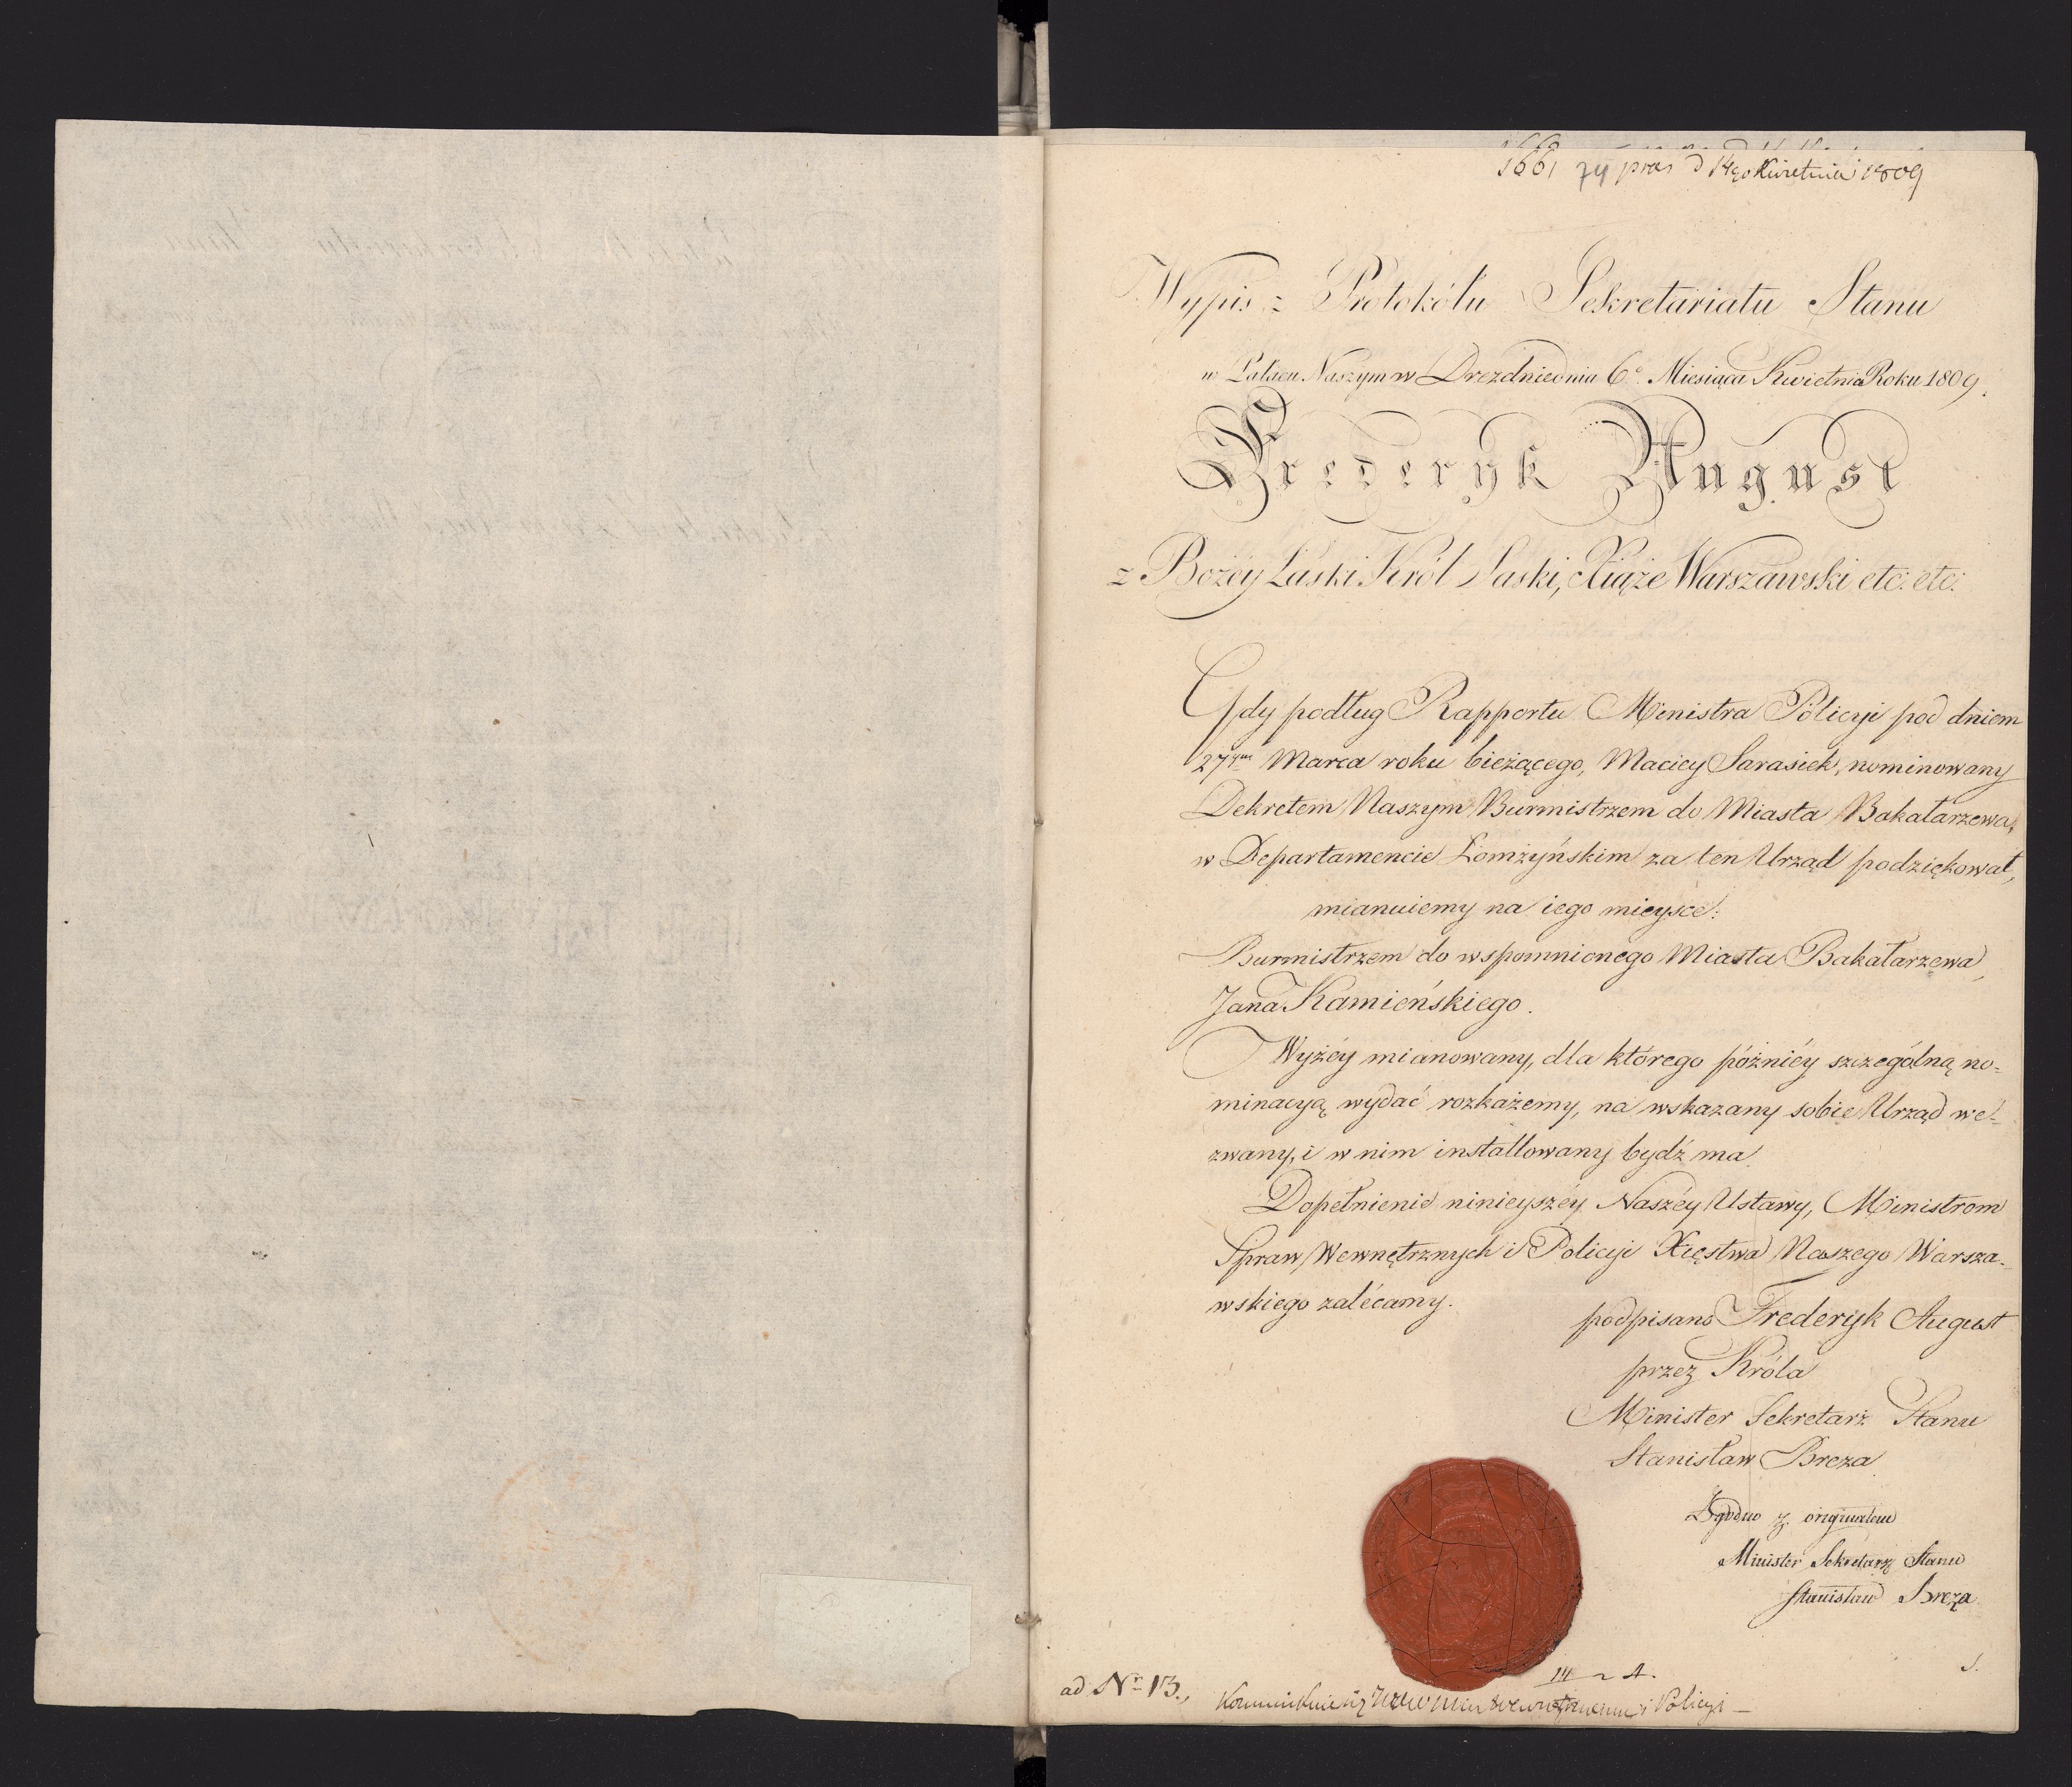 1661 pras d 14go Kwietnia 1809
Wypis z Protokółu Sekretariatu Stanu
w Pałacu Naszym w Dreźdnie dnia 6º Miesiąca Kwietnia Roku 1809.
Frederyk August
z Bożéy Łaski Król Saski, Xiąże Warszawski etc: etc:
Gdy podług Rapportu Ministra Policyi pod dniem
27ym Marca roku bieżącego, Maciey Sarasiek, nominowany
Dekretem Naszym Burmistrzem do Miasta Bakałarzewa,
w Departamencie Łomżyńskim za ten Urząd podziękował,
mianuiemy na iego mieysce:
Burmistrzem do wspomnionego Miasta Bakałarzewa,
Jana Kamieńskiego.
Wyżéy mianowany, dla którego późniéy szczególną no=
minacyą wydać rozkażemy, na wskazany sobie Urząd we=
zwany, i w nim installowany bydź ma.
Dopełnienie ninieyszéy Naszéy Ustawy, Ministrom
Spraw Wewnętrznych i Policyi Xięstwa Naszego Warsza=
wskiego zalécamy.
podpisano Frederyk August
przez Króla
Minister Sekretarz Stanu
Stanisław Breza
Zgodno z originałem
Minister Sekretarz Stanu
Stanisław Breza
ad Nr 13.
i Policyi